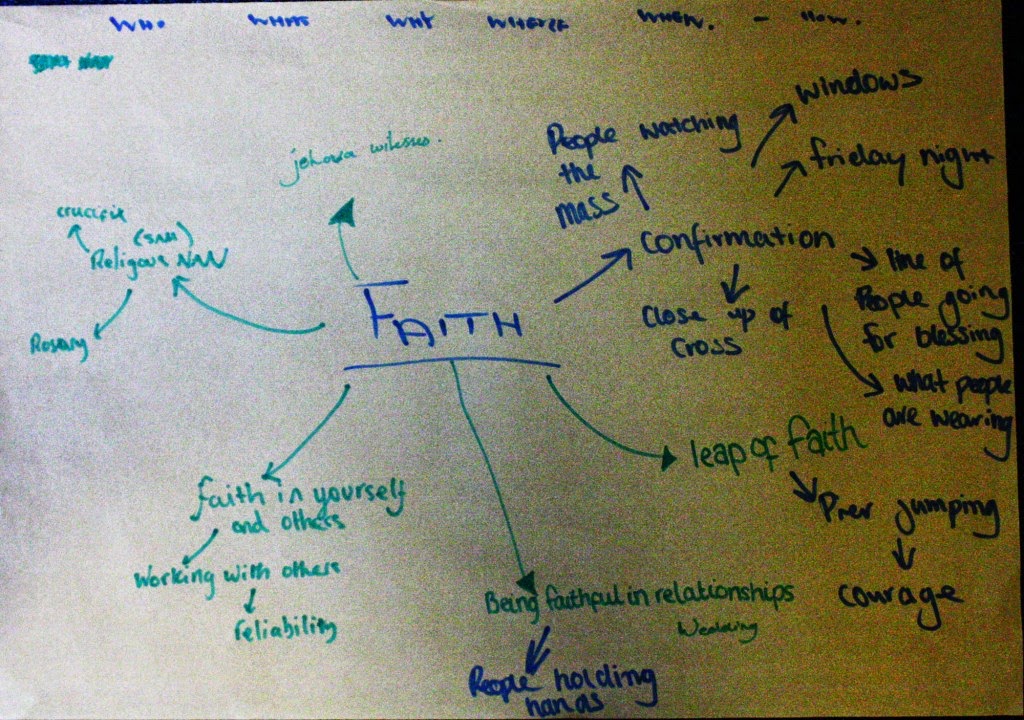 WHO. WHAT WHY WHERE WHEN. - HOW.
jehova witesses.
crucifix
(SAM)
Religous NAN
Rosary
FAITH
People watching
the
mass
windows
friday night
confirmation
Close up of
cross
line of
People going
for blessing
what people
are wearing
leap of faith
Pier jumping
courage
faith in yourself
and others
working with others
reliability
Being faithful in relationships
People holding
hands